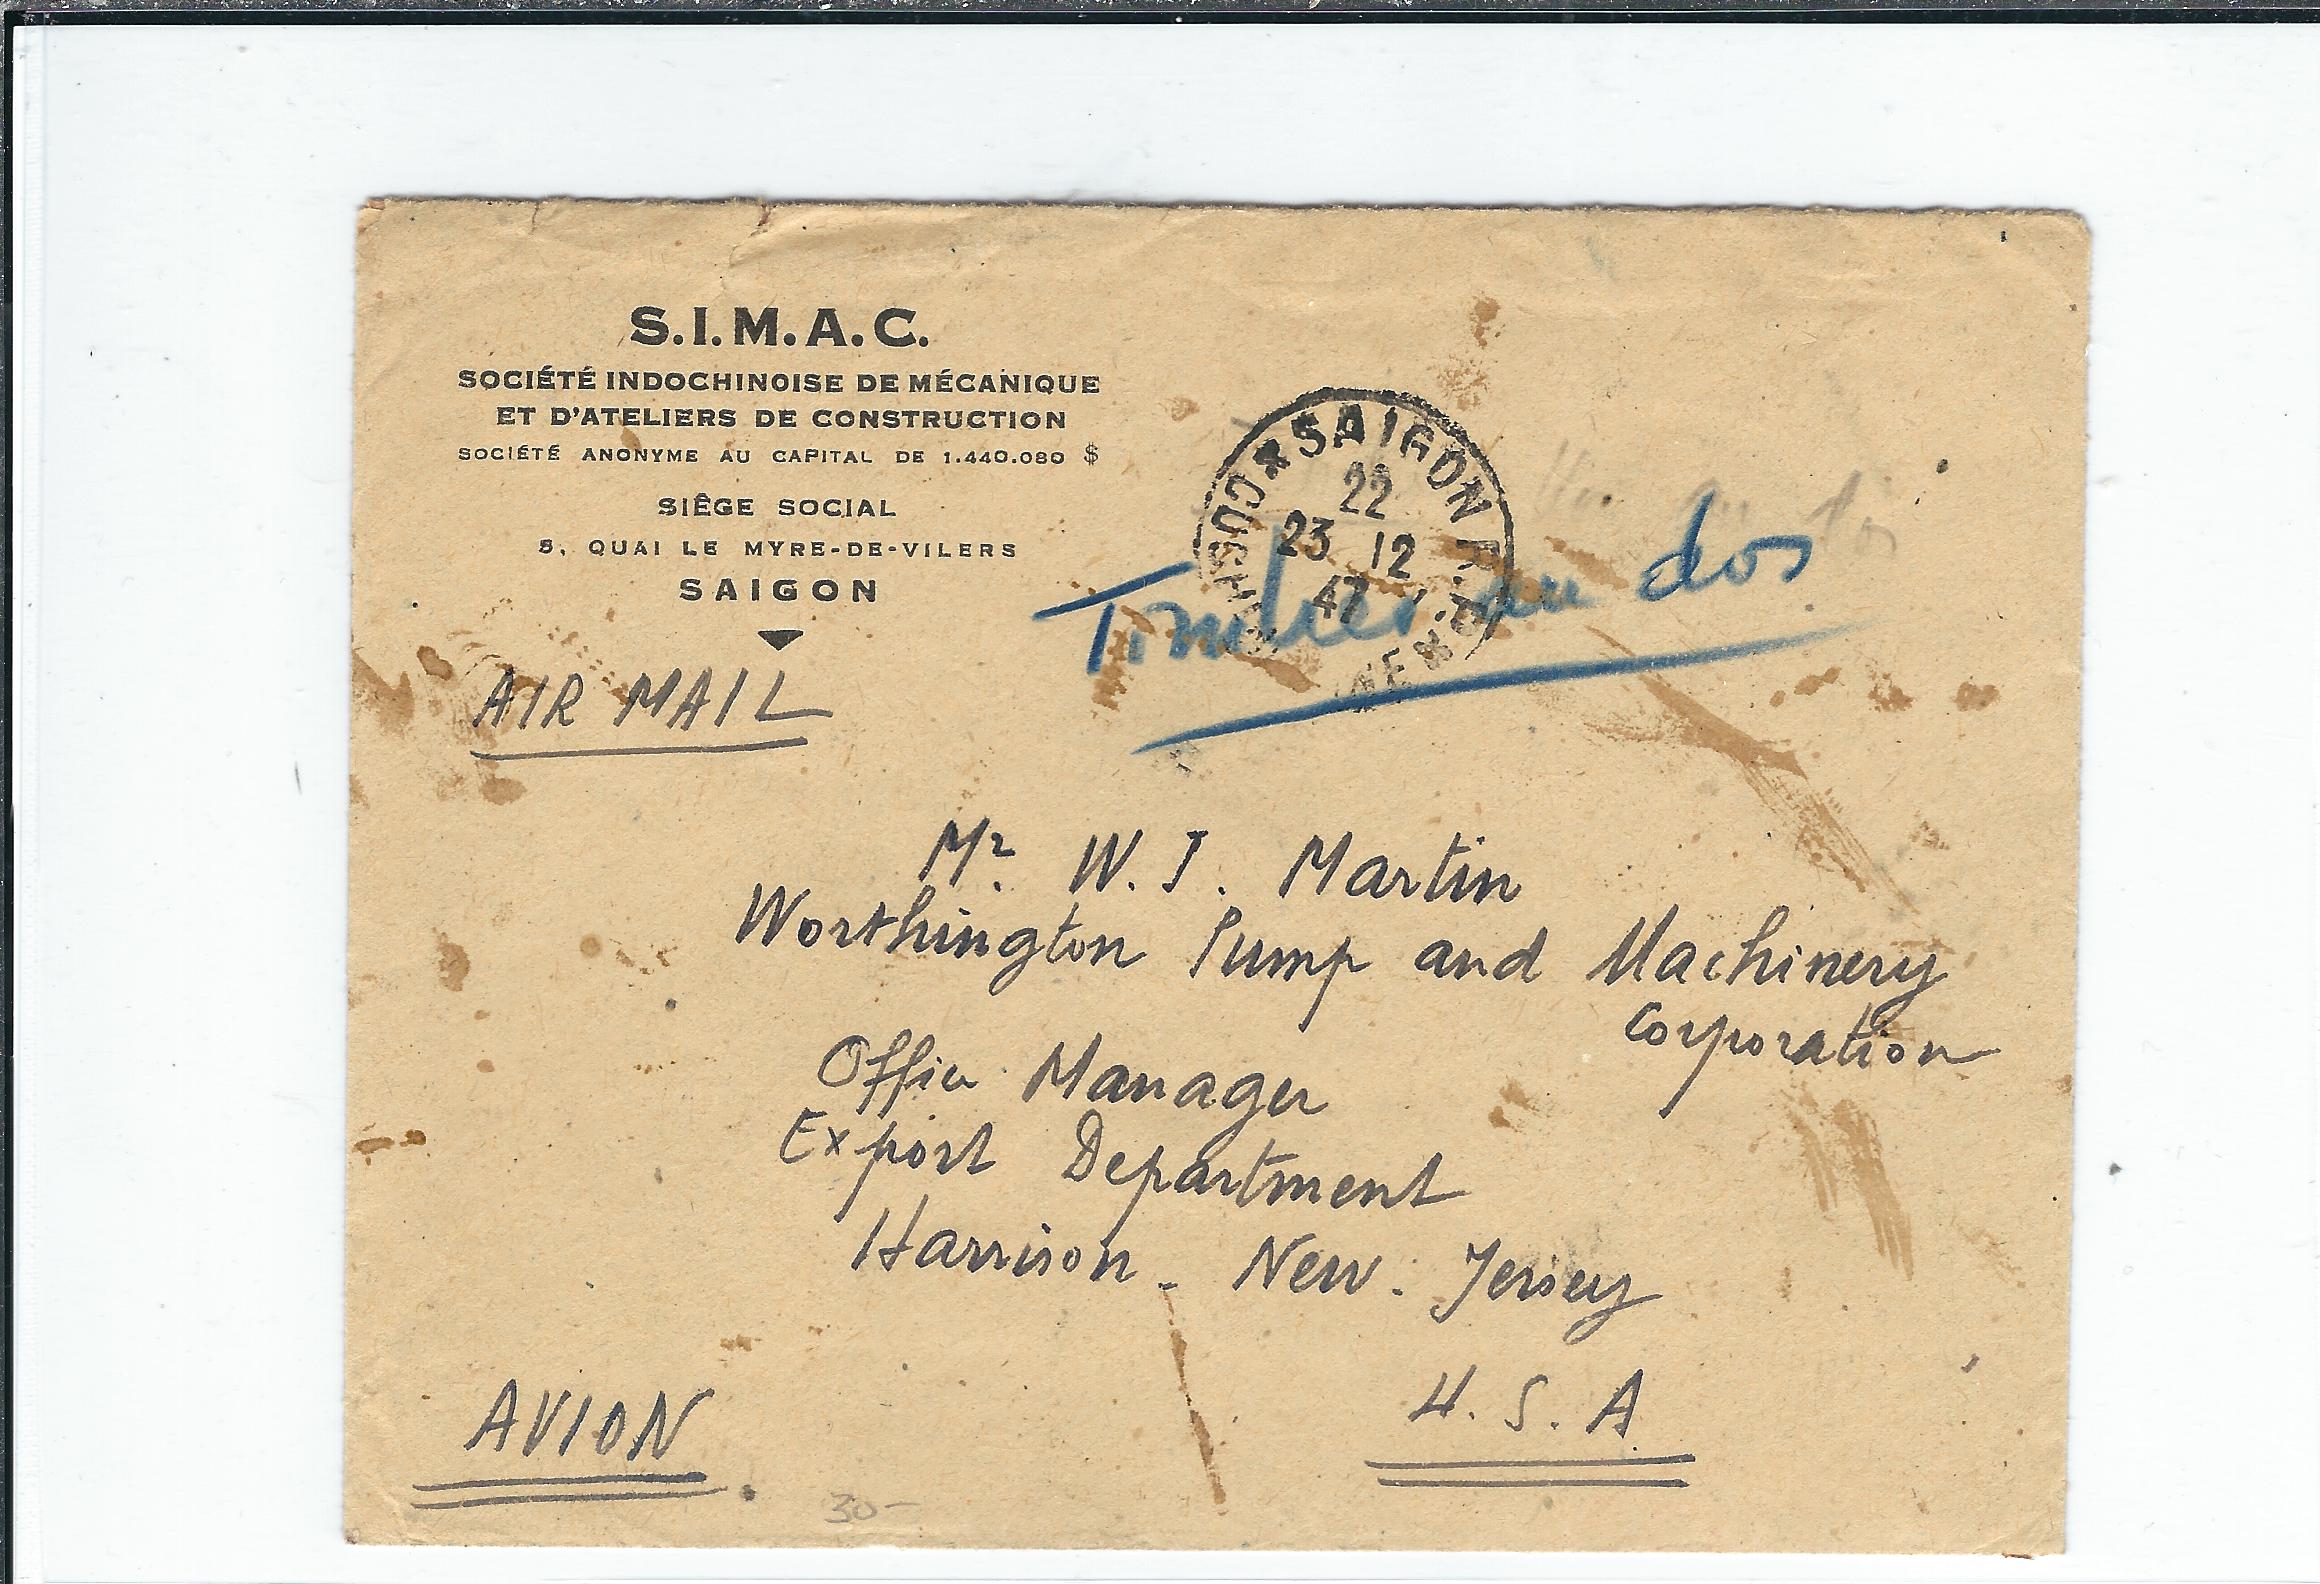 S.I.M.A.C.
SOCIÉTÉ INDOCHINOISE DE MÉCANIQUE
ET D'ATELIERS DE CONSTRUCTION
SOCIÉTÉ ANONYME AU CAPITAL DE 1.440.080 $
SIÈGE SOCIAL
5, QUAI LE MYRE-DE-VILERS
SAIGON
SAIGON R.P.
22
23 12
47
Timbres au dos
AIR MAIL
Mr. W. J. Martin
Worthington Pump and Machinery
Corporation
Office Manager
Export Department
Harrison - New. Jersey
U.S.A.
AVION.
30-